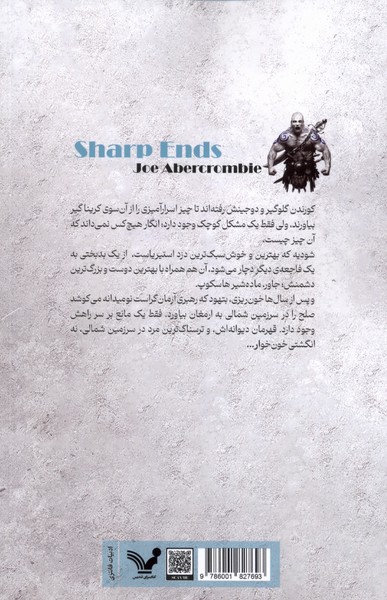 Sharp Ends
Joe Abercrombie
کورندن گلوگیر و دوجینش رفته‌اند تا چیز اسرارآمیزی را از آن‌سوی کرینا گیر
بیاورند، ولی فقط یک مشکل کوچک وجود دارد؛ انگار هیچ‌کس نمی‌داند که
آن چیز چیست.
شودیه که بهترین و خوش‌سبک‌ترین دزد استیریاست، از یک بدبختی به
یک فاجعه‌ی دیگر دچار می‌شود، آن هم همراه با بهترین دوست و بزرگ‌ترین
دشمنش؛ جاور، ماده‌شیر هاسکوپ.
و پس از سال‌ها خون‌ریزی، بتهود که رهبری آرمان‌گراست نومیدانه می‌کوشد
صلح را در سرزمین شمالی به ارمغان بیاورد. فقط یک مانع بر سر راهش
وجود دارد. قهرمان دیوانه‌اش، و ترسناک‌ترین مرد در سرزمین شمالی، نه
انگشتی خون‌خوار...
ادبیات فانتزی
کتابسرای تندیس
SCAN ME
9 786001 827693